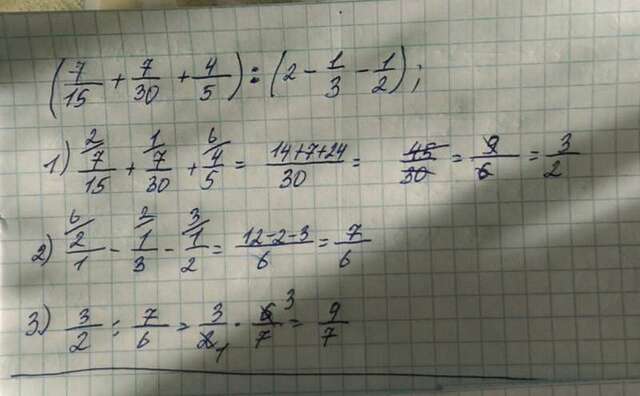 (7/15 + 7/30 + 4/5) : (2 - 1/3 - 1/2);
1) 2/ 7/15 + 1/ 7/30 + 6/ 4/5 = 14+7+24/30 = 45/30 = 9/6 = 3/2
2) 6/ 2/1 - 2/ 1/3 - 3/ 1/2 = 12-2-3/6 = 7/6
3) 3/2 : 7/6 = 3/2 1 · 6 3/7 = 9/7